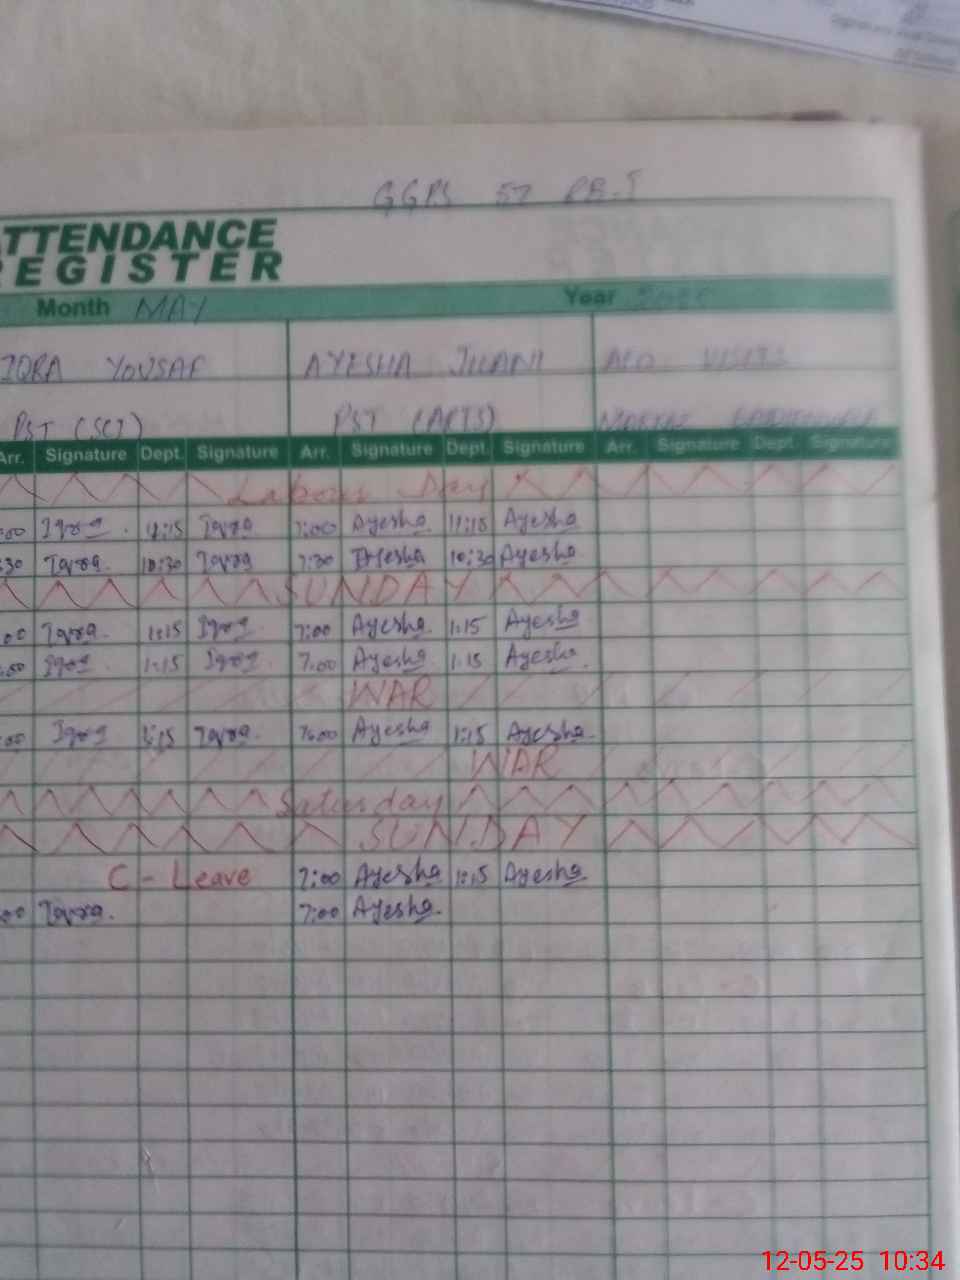 GGPS 57 RB-I
ATTENDANCE
REGISTER
Month MAY Year 2025
IQRA YOUSAF AYESHA JILANI AEO VISITS
PST (SCI) PST (ARTS) MARKAZ
Arr. Signature Dept. Signature Arr. Signature Dept. Signature Arr. Signature Dept. Signature
Labour Day
:00 Iqra 11:15 Iqra 7:00 Ayesha 11:15 Ayesha
:30 Iqra. 10:30 Iqra 7:30 Ayesha 10:30 Ayesha
SUNDAY
:00 Iqra. 1:15 Iqra. 7:00 Ayesha. 1:15 Ayesha
:00 Iqra 1:15 Iqra. 7:00 Ayesha 1:15 Ayesha.
WAR
:00 Iqra 1:15 Iqra. 7:00 Ayesha 1:15 Ayesha.
WAR
Saturday
SUNDAY
C - Leave 7:00 Ayesha 1:15 Ayesha
:00 Iqra. 7:00 Ayesha.
12-05-25 10:34